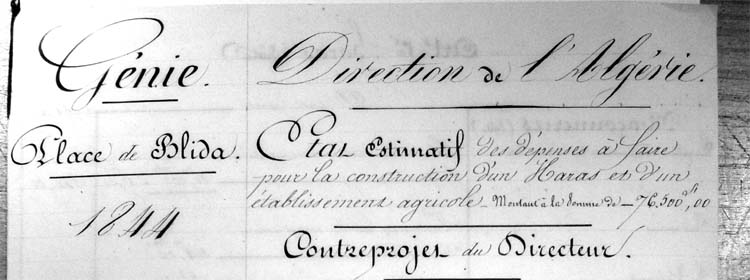 Génie.
Direction de l'Algérie.
Place de Blida.
1844
Etat Estimatif des dépenses à faire
pour la construction d'un Haras et d'un
établissement agricole Montant à la Somme de 76.500 f,00
Contreprojet du Directeur.